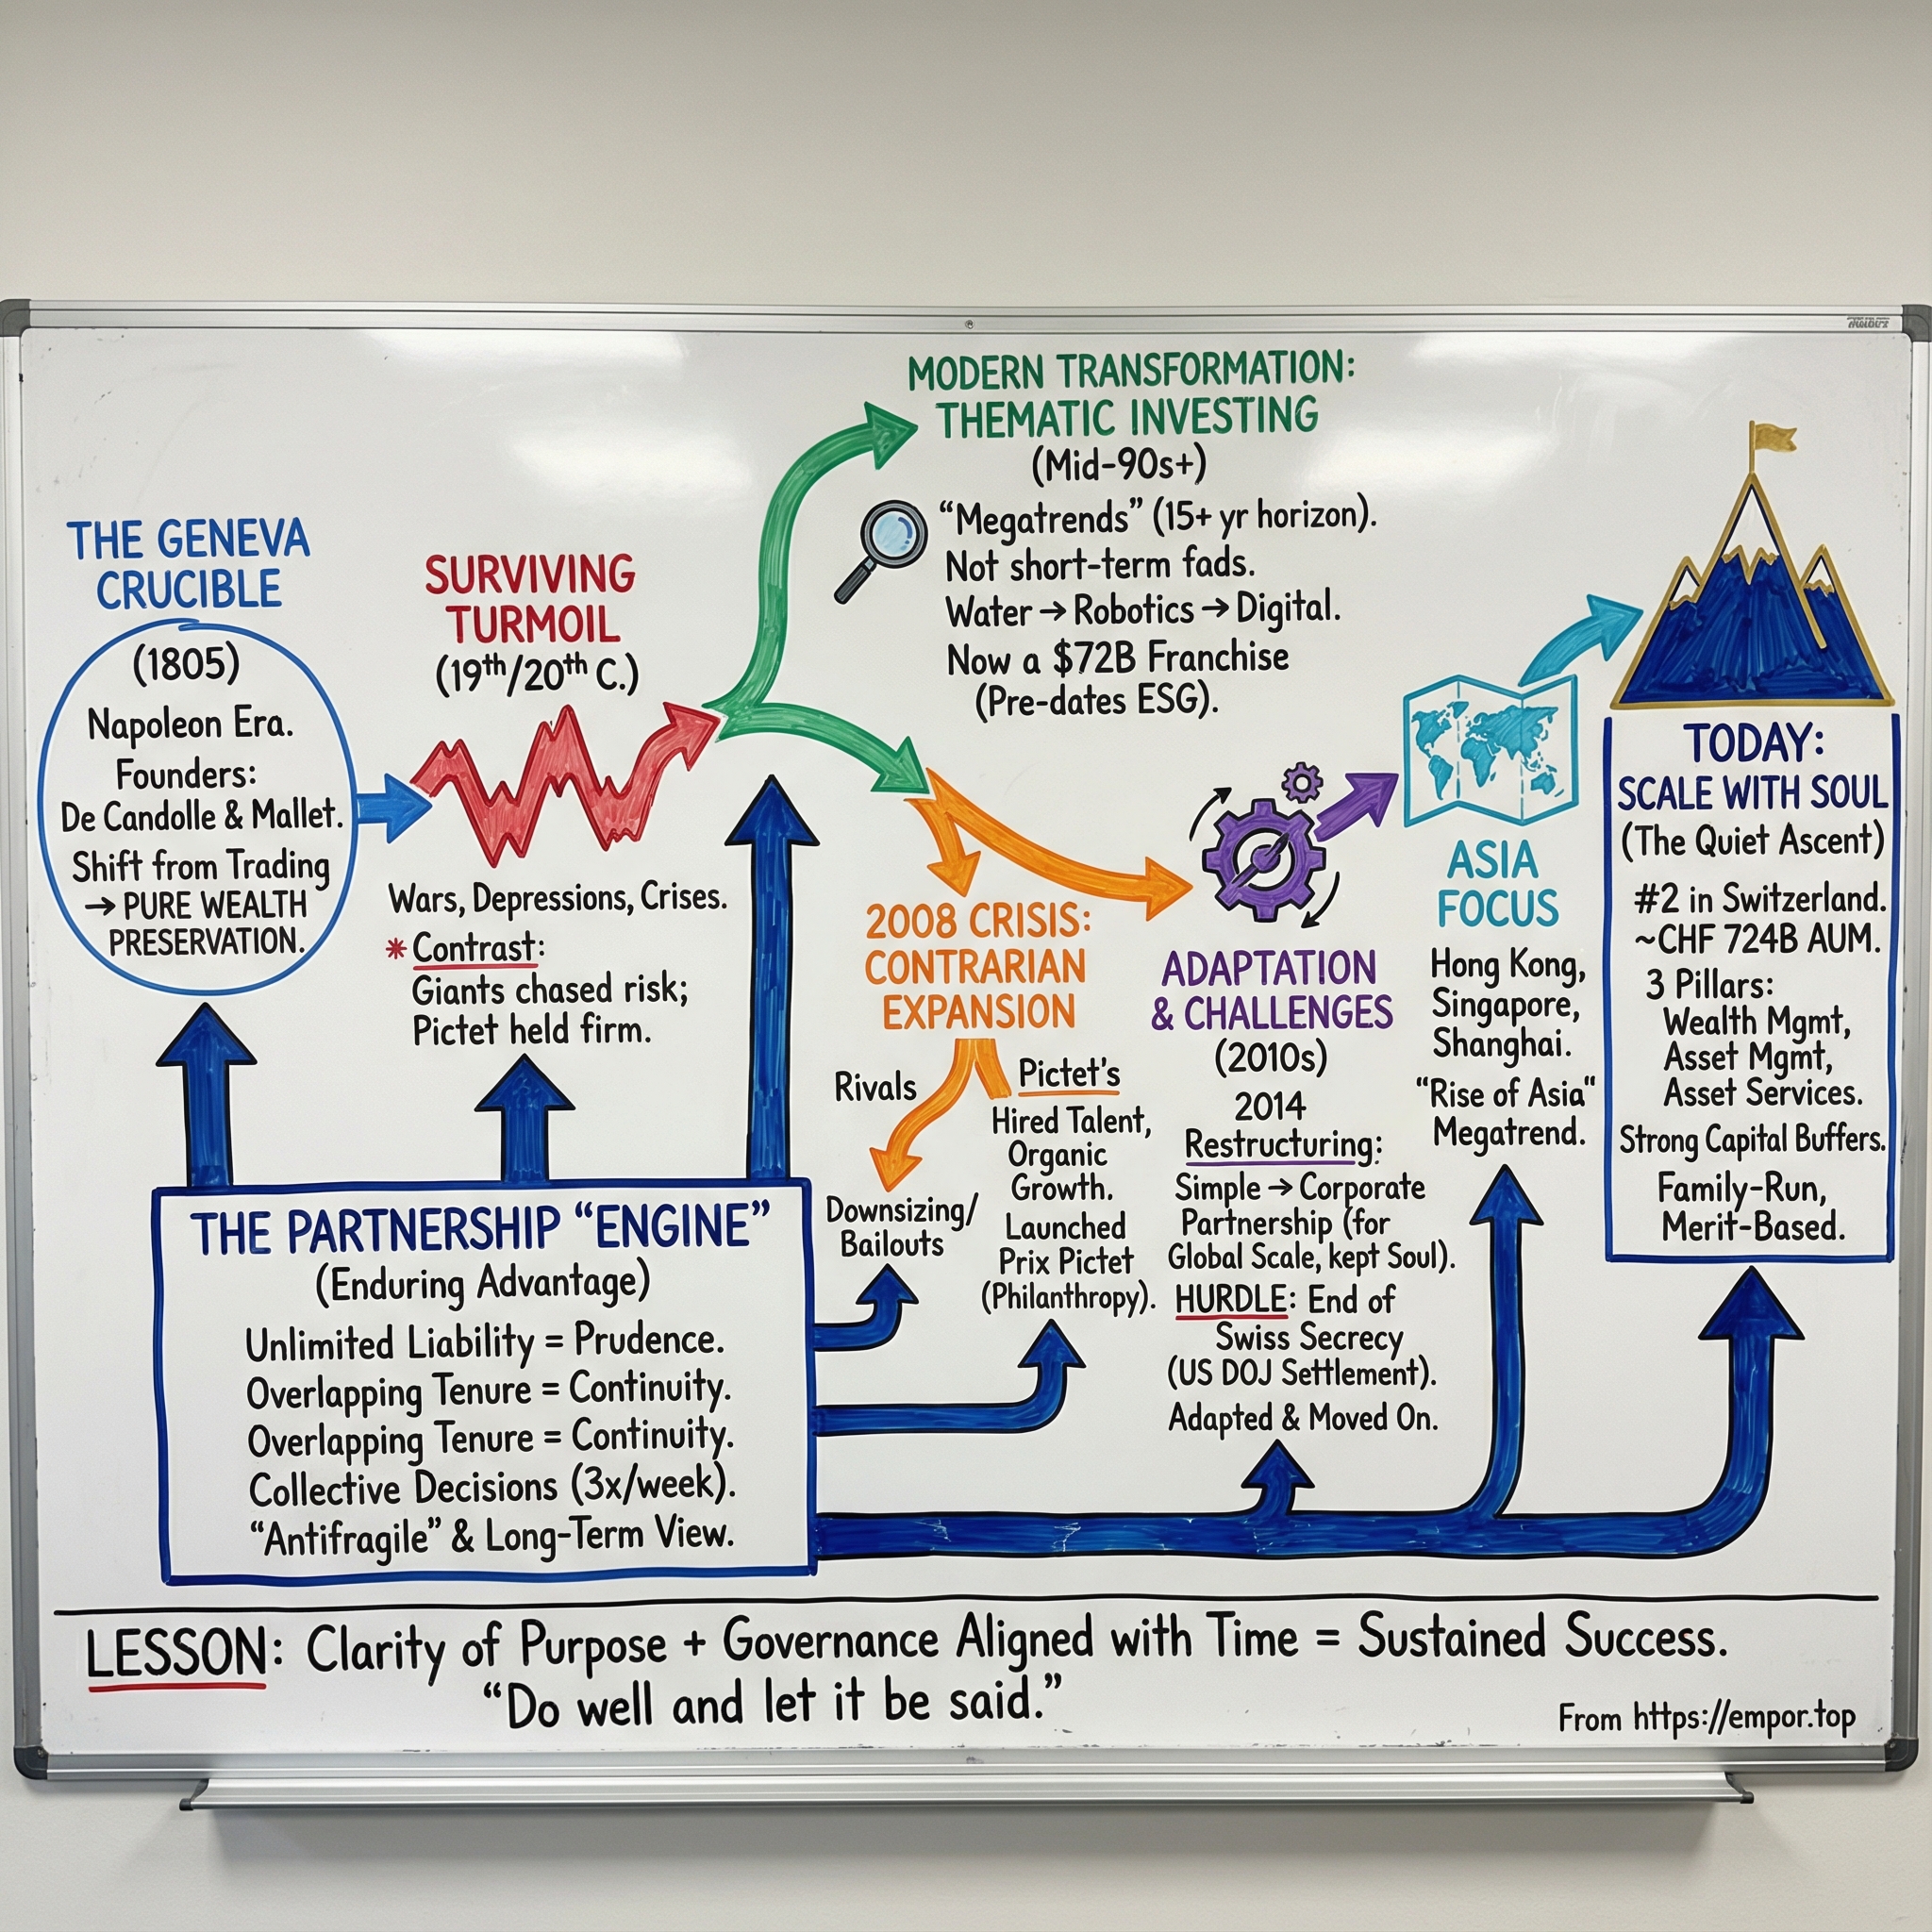 THE GENEVA
CRUCIBLE
(1805)
Napoleon Era.
Founders:
De Candolle & Mallet.
Shift from Trading
→ PURE WEALTH
PRESERVATION.
SURVIVING
TURMOIL
(19th/20th C.)
Wars, Depressions, Crises.
* Contrast:
Giants chased risk;
Pictet held firm.
MODERN TRANSFORMATION:
THEMATIC INVESTING
(Mid-90s+)
“Megatrends” (15+ yr horizon).
Not short-term fads.
Water → Robotics → Digital.
Now a $72B Franchise
(Pre-dates ESG).
2008 CRISIS:
CONTRARIAN
EXPANSION
Rivals
Downsizing/
Bailouts
Pictet's
Hired Talent,
Organic
Growth.
Launched
Prix Pictet
(Philanthropy).
ADAPTATION
& CHALLENGES
(2010s)
2014
Restructuring:
Simple → Corporate
Partnership (for
Global Scale, kept Soul).
HURDLE: End of
Swiss Secrecy
(US DOJ Settlement).
Adapted & Moved On.
ASIA
FOCUS
Hong Kong,
Singapore,
Shanghai.
“Rise of Asia"
Megatrend.
TODAY:
SCALE WITH SOUL
(The Quiet Ascent)
#2 in Switzerland.
~CHF 724B AUM.
3 Pillars:
Wealth Mgmt,
Asset Mgmt,
Asset Services.
Strong Capital Buffers.
Family-Run,
Merit-Based.
THE PARTNERSHIP “ENGINE”
(Enduring Advantage)
Unlimited Liability = Prudence.
Overlapping Tenure = Continuity.
Overlapping Tenure = Continuity.
Collective Decisions (3x/week).
“Antifragile” & Long-Term View.
LESSON: Clarity of Purpose + Governance Aligned with Time = Sustained Success.
“Do well and let it be said.”
From https://empor.top